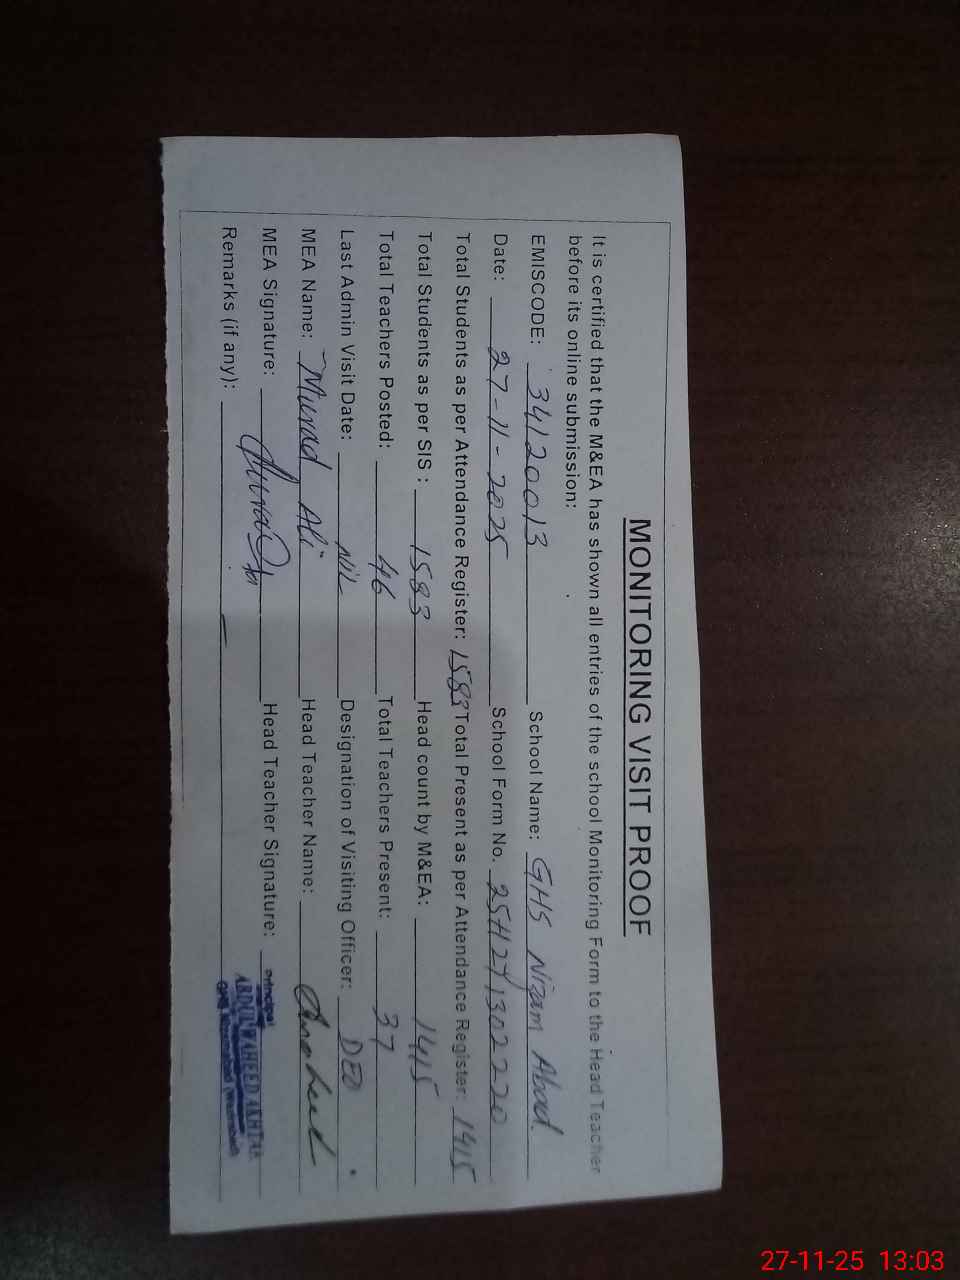 MONITORING VISIT PROOF
It is certified that the M&EA has shown all entries of the school Monitoring Form to the Head Teacher
before its online submission:
EMISCODE: 34120013 School Name: GHS Nizam Abad.
Date: 27-11-2025 School Form No. 25H2Y1302220
Total Students as per Attendance Register: 1583 Total Present as per Attendance Register: 1415
Total Students as per SIS : 1583 Head count by M&EA: 1415
Total Teachers Posted: 46 Total Teachers Present: 37
Last Admin Visit Date: Nil Designation of Visiting Officer: DEO
MEA Name: Murad Ali Head Teacher Name:
MEA Signature: Head Teacher Signature:
Principal
ABDUL WAHEED AKHTAR
Remarks (if any): —
27-11-25 13:03